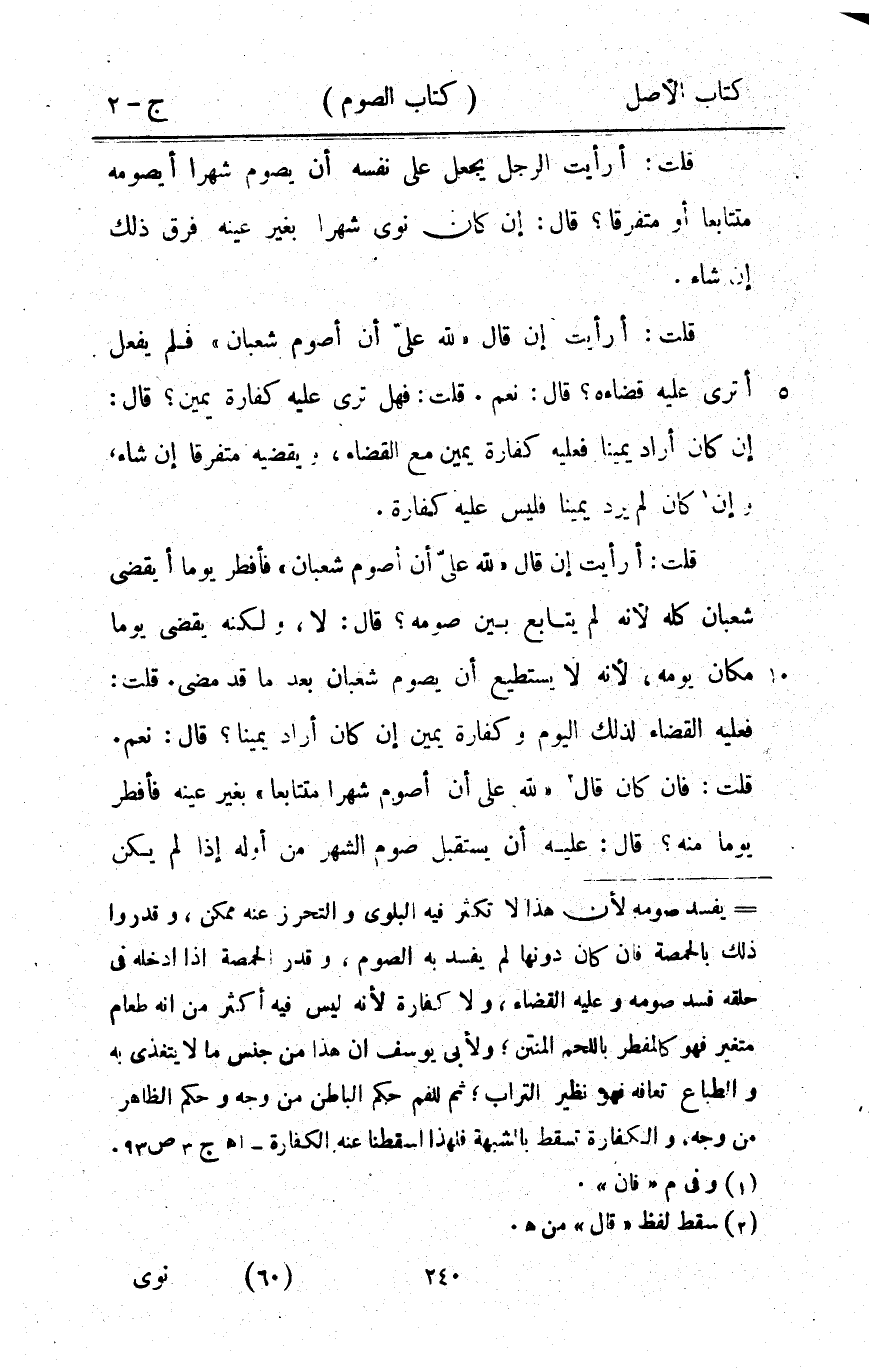 كتاب الأصل ( كتاب الصوم ) ج - ٢
قلت : أ رأيت الرجل يجعل على نفسه أن يصوم شهرا أ يصومه
متتابعا أو متفرقا ؟ قال : إن كان نوى شهرا بغير عينه فرق ذلك
إن شاء .
قلت : أ رأيت إن قال « لله علىّ أن أصوم شعبان » فلم يفعل
٥ أ ترى عليه قضاءه ؟ قال : نعم . قلت : فهل ترى عليه كفارة يمين ؟ قال :
إن كان أراد يمينا فعليه كفارة يمين مع القضاء ، و يقضيه متفرقا إن شاء ،
و إن ١ كان لم يرد يمينا فليس عليه كفارة .
قلت : أ رأيت إن قال « لله علىّ أن أصوم شعبان » فأفطر يوما أ يقضى
شعبان كله لأنه لم يتابع بين صومه ؟ قال : لا ، و لكنه يقضى يوما
١٠ مكان يومه ، لأنه لا يستطيع أن يصوم شعبان بعد ما قد مضى . قلت :
فعليه القضاء لذلك اليوم و كفارة يمين إن كان أراد يمينا ؟ قال : نعم .
قلت : فان كان قال ٢ « لله على أن أصوم شهرا متتابعا » بغير عينه فأفطر
يوما منه ؟ قال : عليه أن يستقبل صوم الشهر من أوله إذا لم يكن
= يفسد صومه لأن هذا لا تكثر فيه البلوى و التحرز عنه ممكن ، و قدروا
ذلك بالحمصة فان كان دونها لم يفسد به الصوم ، و قدر الحمصة اذا ادخله فى
حلقه فسد صومه و عليه القضاء ، و لا كفارة لأنه ليس فيه أكثر من انه طعام
متغير فهو كالمفطر باللحم المنتن ؛ ولأبى يوسف ان هذا من جنس ما لا يتغذى به
و الطباع تعافه فهو نظير التراب ؛ ثم للفم حكم الباطن من وجه و حكم الظاهر
من وجه ، و الكفارة تسقط بالشبهة فلهذا اسقطنا عنه الكفارة - اه ج ٣ ص ٩٣ .
(١) و فى م « فان » .
(٢) سقط لفظ « قال » من ه .
٢٤٠ (٦٠) نوى